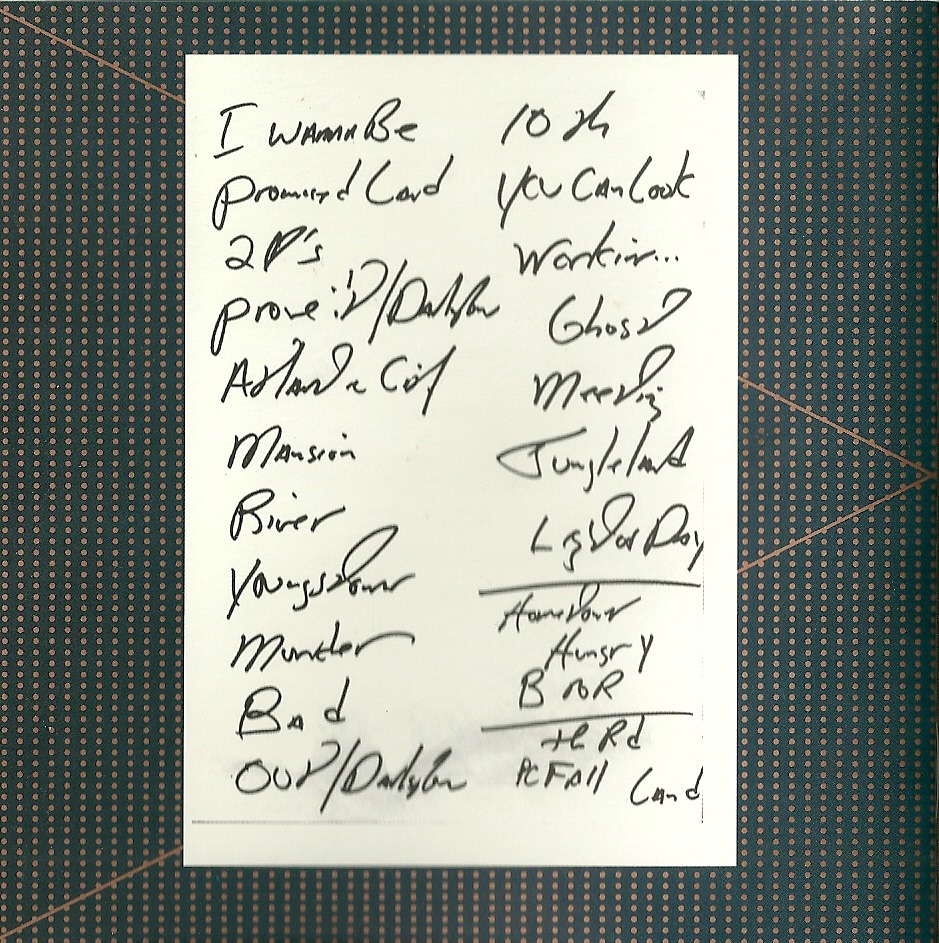 I wanna Be
Promised Land
2 
Prove it/Darkness
Atlantic City
Mansion
River
Youngstown
Murder
Bad
OUT/Darkness
10th
You Can Look
Workin...
Ghost
Meeting
Jungleland
Light of Day
Hometown
Hungry
B to R
th Rd
If I Fall
Land